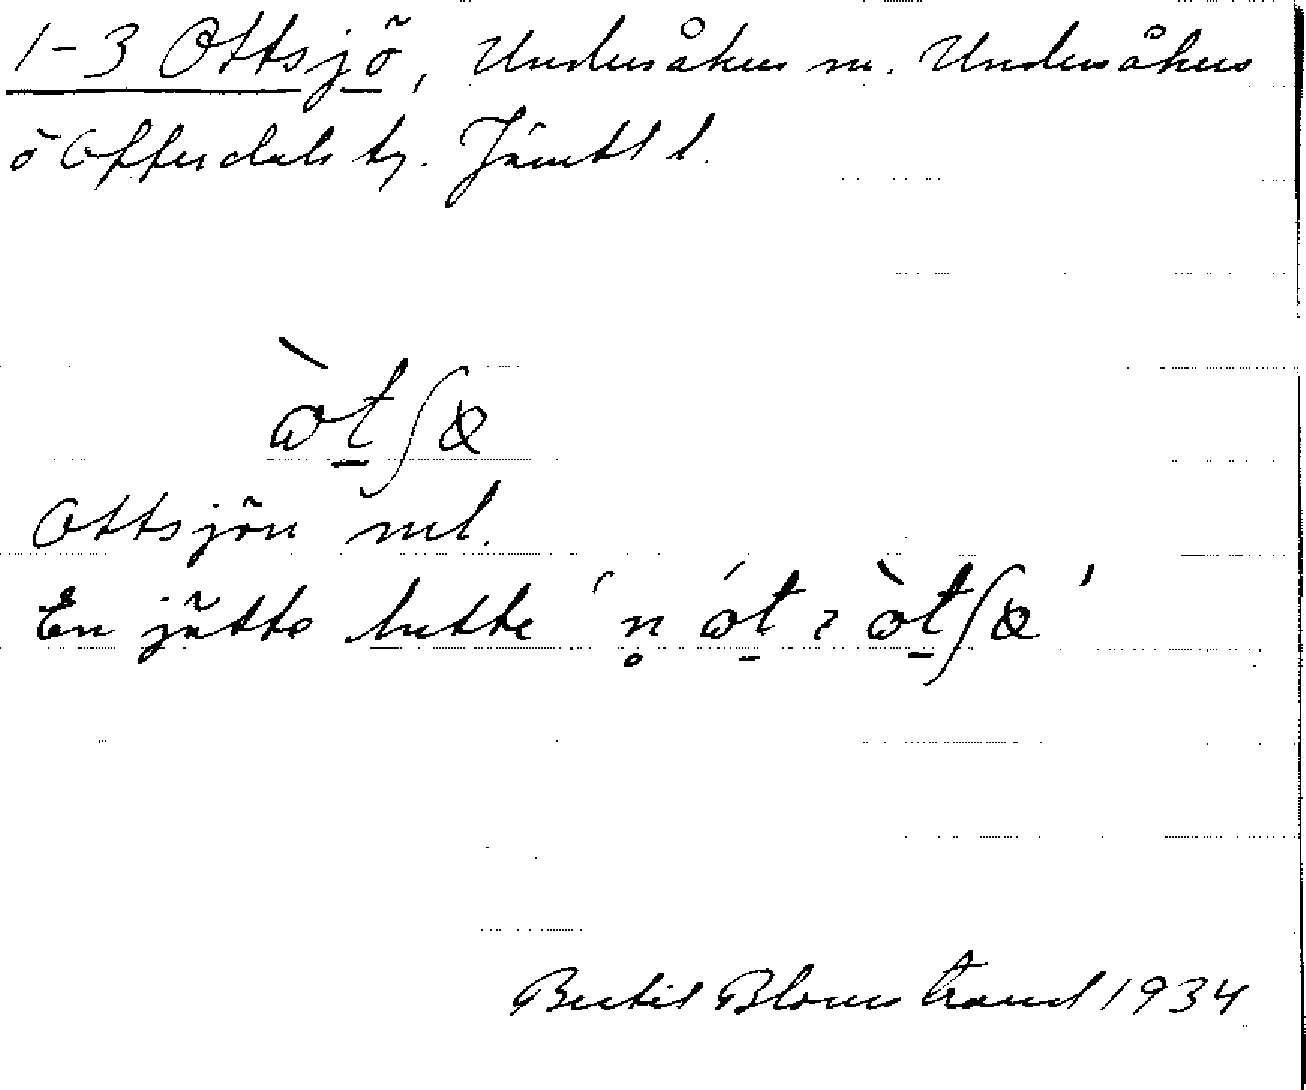 1-3 Ottsjö, Undersåkers sn. Undersåkers
o Offerdals tg. Jämtl l.
Ottsjön ml.
En jätte hette
Bertil Blomstrand 1934